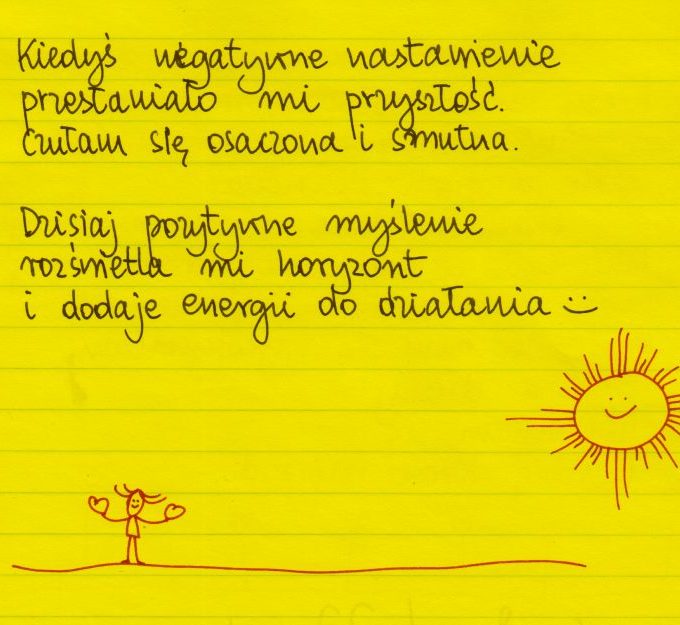 Kiedyś negatywne nastawienie
przesłaniało mi przyszłość.
Czułam się osaczona i smutna.
Dzisiaj pozytywne myślenie
rozświetla mi horyzont
i dodaje energii do działania :)